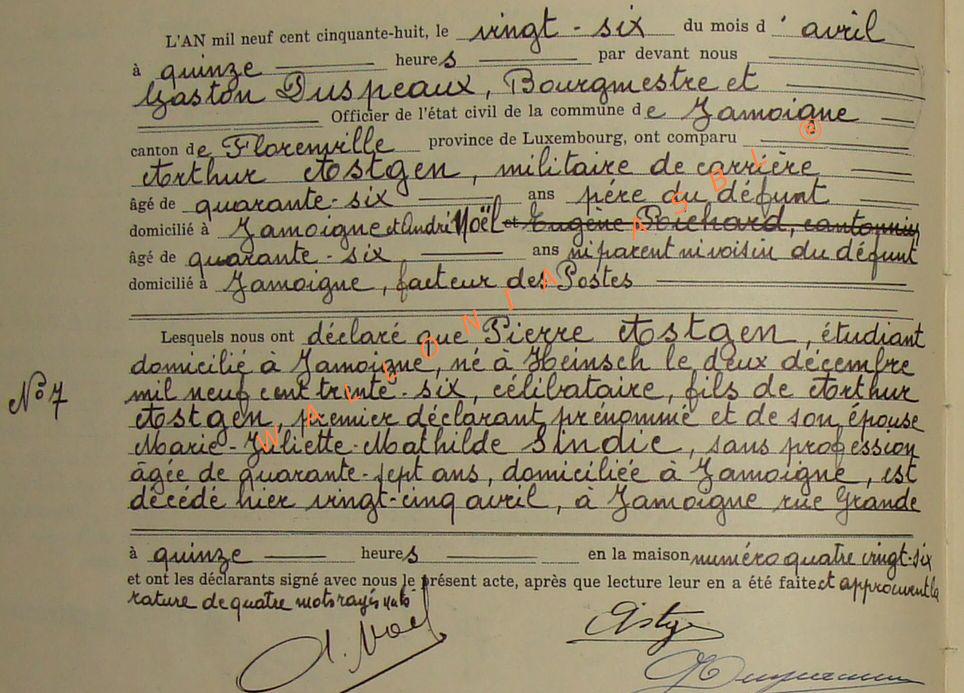 L'AN mil neuf cent cinquante-huit, le vingt-six du mois d'avril
à quinze heures par devant nous
Gaston Duspeaux, Bourgmestre et
Officier de l'état civil de la commune de Jamoigne
canton de Florenville province de Luxembourg, ont comparu
Arthur Astgen, militaire de carrière
âgé de quarante-six ans père du défunt
domicilié à Jamoigne et André Noël et Eugène Poichard, cantonnier
âgé de quarante-six, ans ni parent ni voisin du défunt
domicilié à Jamoigne, facteur des Postes
Lesquels nous ont déclaré que Pierre Astgen, étudiant
domicilié à Jamoigne, né à Heinsch le deux décembre
No 7
mil neuf cent trente-six, célibataire, fils de Arthur
Astgen, premier déclarant prénommé et de son épouse
Marie-Juliette-Mathilde Sindic, sans profession
âgée de quarante-sept ans, domiciliée à Jamoigne, est
décédé hier vingt-cinq avril, à Jamoigne rue Grande
à quinze heures en la maison numéro quatre vingt-six
et ont les déclarants signé avec nous le présent acte, après que lecture leur en a été faite et approuvent la
rature de quatre mots rayés nuls
A. Noël
WALLONIA ASBL ©